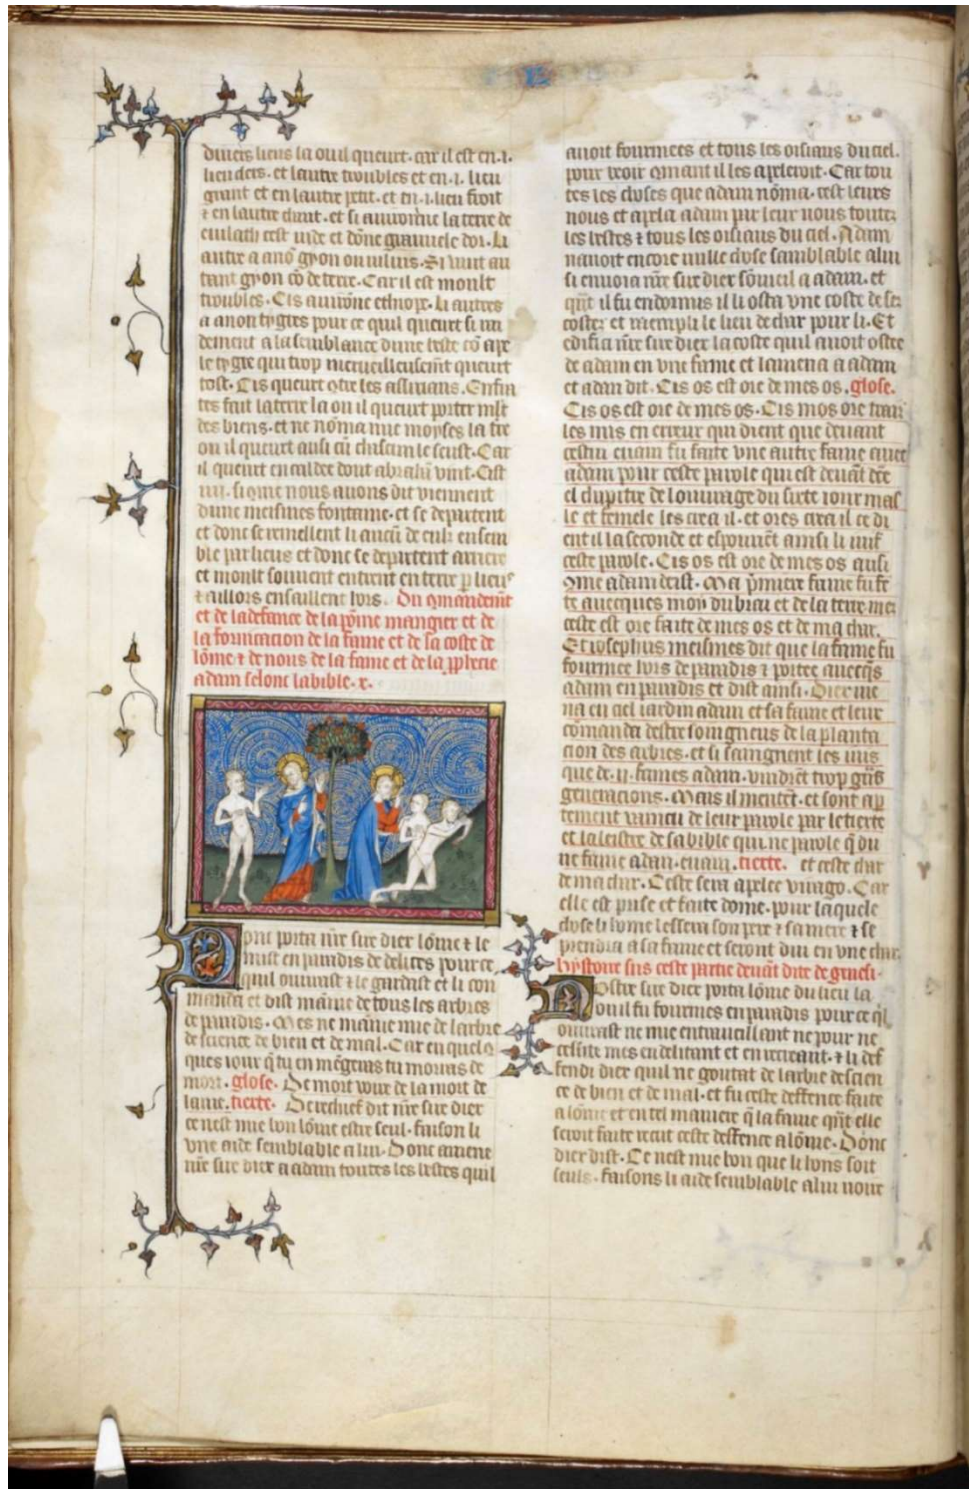 diuers lieus la ou il queurt. car il est en .i.
lieu clers. et lautre troubles et en .i. lieu
grant et en lautre petit. et en .i. lieu froit
⁊ en lautre chaut. et si auironne la terre de
euilath cest inde et done grauuele dor. Li
autre a anō gyon ou nilus. Si vaut au
tant gyon cō de terre. Car il est moult
troubles. Cis auirōne ethiope. Li autres
a a non tygres pour ce quil queurt si ra
dement a la semblance dune beste cō ape
le tygre qui trop merueilleusemt queurt
tost. Cis queurt ꝯtre les assirians. Eufra
tes fait la terre la ou il queurt porter mlt
des biens. et ne nōma mie moyses la tre
ou il queurt ausi cū chascun le seust. Car
il queurt en caldee dont abrahā vint. Cist
iiii. si ꝯme nous auons dit viennent
dune meismes fontaine. et se departent
et donc se remellent li aucū de eulz ensem
ble par lieus et donc se departent arriere
et moult souuent entrent en terre p lieus
⁊ aillors ensaillent hors. Du ꝯmandemt
et de la defance de la pōme mangier et de
la formacion de la fame et de la coste de
lōme ⁊ de nous de la fame et de la pphecie
adam selonc la bible. x.
Dont porta nre sire diex lōme ⁊ le
mist en paradis de delices pour ce
quil ouurast ⁊ le gardast et li con
manda et dist maniue de tous les arbres
de paradis. Mes ne maniue mie de larbre
de science de bien et de mal. Car en quelq
ques iour q̄ tu en mēgeras tu morras de
mort. glose. De mort voire de la mort de
lame. tiexte. Derechief dit nre sire diex
ce nest mie bon lōme estre seul. faison li
vne aide semblable a lui. Donc amene
nre sire diex a adam toutes les bestes quil
auoit fourmees et tous les oisiaus du ciel.
pour veoir ꝯmant il les apeleroit. Car tou
tes les choses que adam nōma. cest leurs
nous et apela adam par leur nous toutez
les bestes ⁊ tous les oisiaus du ciel. Adam
nauoit encore nulle chose samblable a lui
si enuoia nre sire diex someil a adam. et
qnt il fu endormis il li osta vne coste de sez
costez et raempli le lieu de char pour li. Et
edifia nre sire diex la coste quil auoit ostee
de adam en vne fame et lamena a adam
et adam dit. Cis os est ore de mes os. glose.
Cis os est ore de mes os. Cis mos ore
les mis en erreur qui dient que deuant
cestui euam fu faite vne autre fame auec
adam pour ceste parole qui est deuāt dite
el chapitre de louurage du sixte iour mas
le et femele les crea il. et ores crea il ce di
ent il la seconde et espouuēt ainsi li
ceste parole. Cis os est ore de mes os ausi
ꝯme adam deist. Ma pmiere fame fu fe
te auecques moy du brai et de la terre mes
ceste est ore faite de mes os et de ma char.
Et iosephus meismes dit que la fame fu
fourmee hors de paradis ⁊ portee auecqs
adam en paradis et dist ainsi. Diex me
na en cel iardin adam et sa fame et leur
cōmanda destre soingneus de la planta
cion des arbres. et si faingnent les iuis
que de .ii. fames adam. vindrēt trop
generacions. Mais il mentēt. et sont ap
tement vaincu de leur parole par le tiexte
et la leistre de la bible qui ne parole q̄ du
ne fame adan. euam. tiexte. et ceste char
de ma char. Ceste sera apelee virago. Car
elle est prise et faite dome. pour laquele
chose li home lessera son pere ⁊ sa mere ⁊ se
prendra a sa fame et seront dui en vne char.
hystoire sus ceste partie deuāt dite de genesi.
Nostre sire diex porta lōme du lieu la
ou il fu fourmes en paradis pour ce ql
ouurast ne mie en trauaillant ne pour ne
cessite mes en delitant et en recreant. ⁊ li def
fendi diex quil ne goutat de larbre de scien
ce de bien et de mal. et fu ceste deffence faite
a lōme et en tel maniere q̄ la fame qnt elle
seroit faite receut ceste deffence a lōme. Donc
diex dist. Ce nest mie bon que li hons soit
seuls. faisons li aide semblable a lui noire